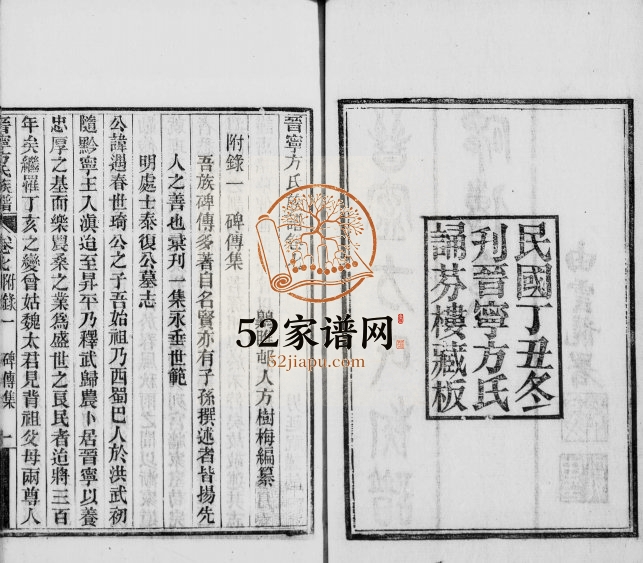 民國丁丑冬
刋晉寧方氏
誦芬樓藏板
晉寧方氏族譜卷
邨人方樹梅編纂
附錄一　碑傳集
吾族碑傳多著自名賢亦有子孫撰述者皆揚先
人之善也彙刋一集永垂世範
明處士泰復公墓志
公諱遇春世琦公之子吾始祖乃西蜀巴人於洪武初
隨黔寧王入滇迨至昇平乃釋武歸農卜居晉寧以養
忠厚之基而樂農桑之業爲盛世之良民者迨將三百
年矣繼罹丁亥之變曾姑魏太君見背祖父母兩尊人
晉寧方氏族譜　卷之七附錄一　碑傳集　一
52家谱网
52jiapu.com